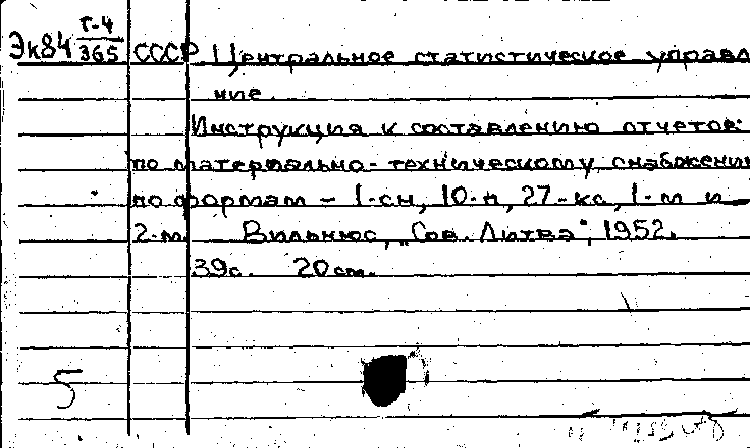 Эк84 Г-4/365 СССР Центральное статистическое управле
ние.
Инструкция к составлению отчетов:
по материально-техническому снабжению
по формам - 1-сн, 10-п, 27-кс, 1-м и
2-м. Вильнюс, „Сов. Литва", 1952.
39с. 20см.
5